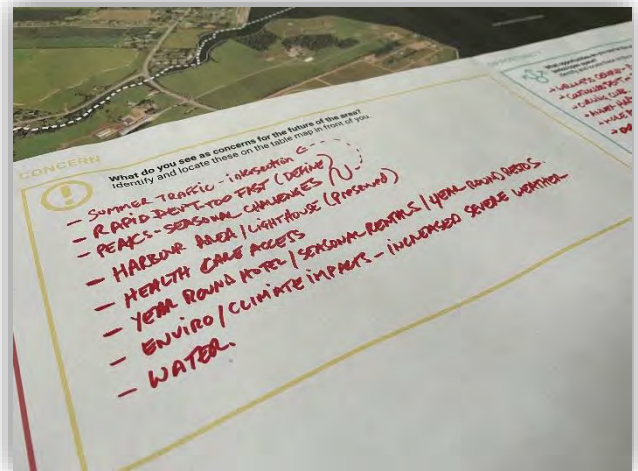 CONCERN
What do you see as concerns for the future of the area?
Identify and locate these on the table map in front of you.
- SUMMER TRAFFIC - intersection
- RAPID DEV'T TOO FAST (DEFINE)
- PEAKS - SEASONAL CHALLENGES
- HARBOUR AREA / LIGHTHOUSE (preserved)
- HEALTH CARE ACCESS
- YEAR ROUND HOTEL / SEASONAL RENTALS / YEAR ROUND NEEDS.
- ENVIRO / CLIMATE IMPACTS - INCREASED SEVERE WEATHER
- WATER.
OPPORTUNITY
What opportunities do you